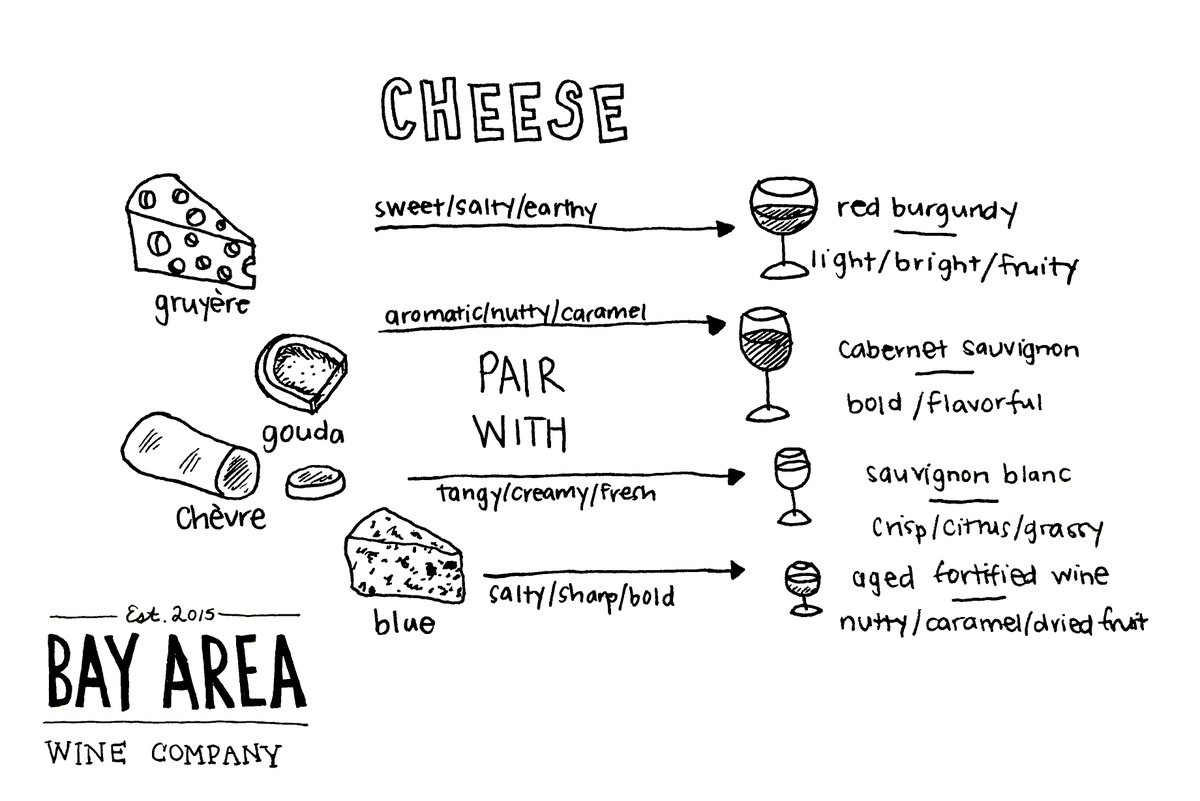 CHEESE
gruyère
sweet/salty/earthy
red burgundy
light/bright/fruity
gouda
aromatic/nutty/caramel
PAIR
WITH
cabernet sauvignon
bold/flavorful
Chèvre
tangy/creamy/fresh
sauvignon blanc
crisp/citrus/grassy
blue
salty/sharp/bold
aged fortified wine
nutty/caramel/dried fruit
Est. 2015
BAY AREA
WINE COMPANY